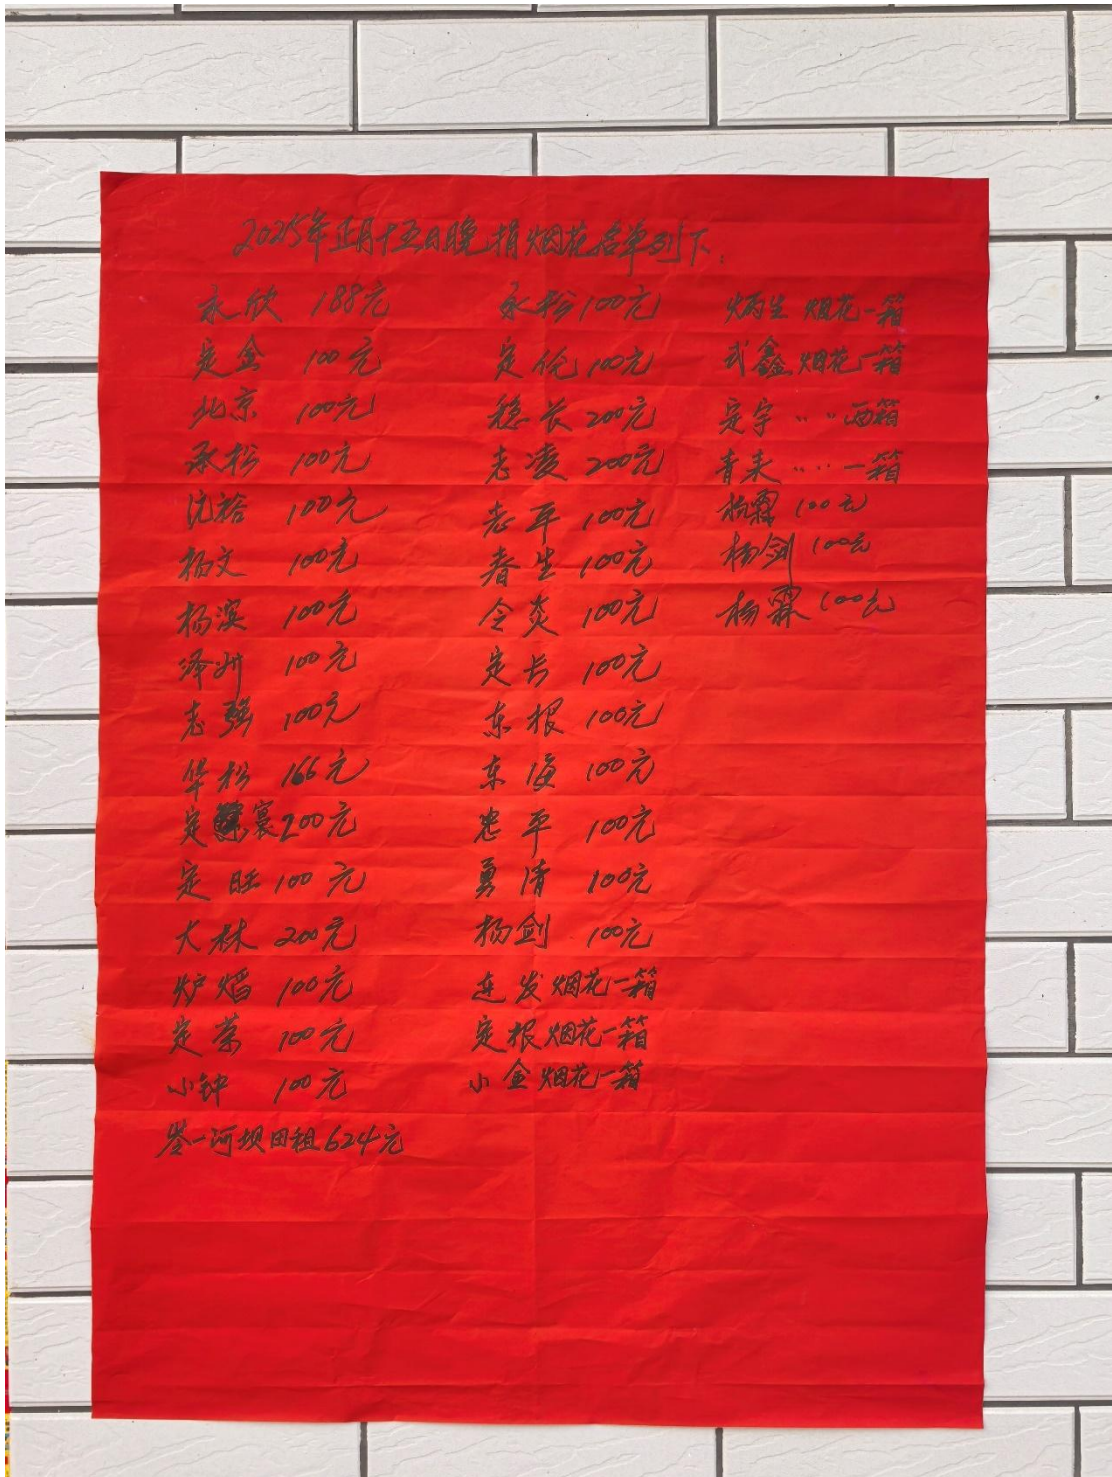 2025年正月十五日晚捐烟花名单列下:
永欣 188元
定金 100元
北京 100元
承松 100元
沈裕 100元
杨文 100元
杨滨 100元
泽州 100元
志强 100元
华松 166元
定寰200元
定旺100元
大林 200元
炉熖 100元
定荣 100元
小钟 100元
岺一河坝田租624元
永松100元
定伦100元
稳长200元
志凌200元
志平100元
春生100元
令炎100元
定长100元
东根100元
东海100元
忠平100元
勇清100元
杨剑100元
连发烟花一箱
定根烟花一箱
小金烟花一箱
炳生 烟花一箱
武鑫烟花一箱
定宇 〃 〃 两箱
青耒 〃 〃 一箱
杭霖 100元
杨剑 100元
杨霖 100元